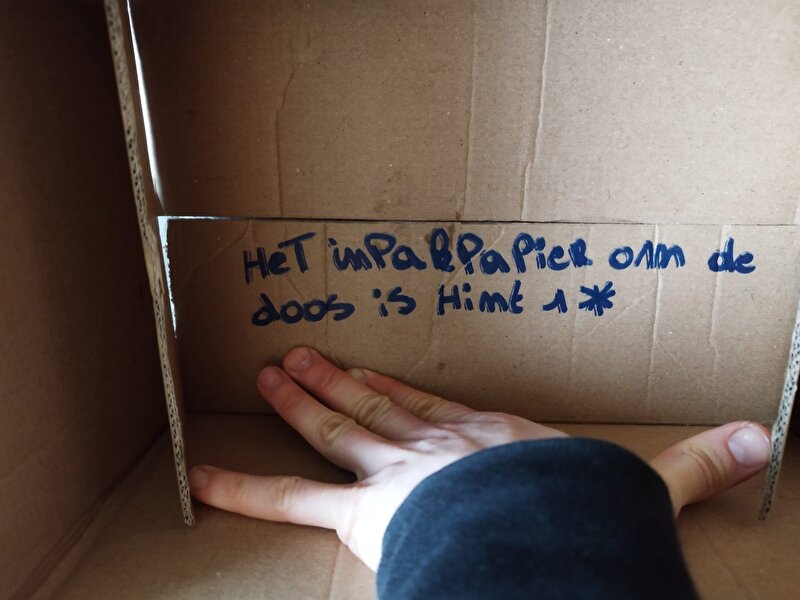 HeT inPaKPaPieR om de
doos is Hint 1 *